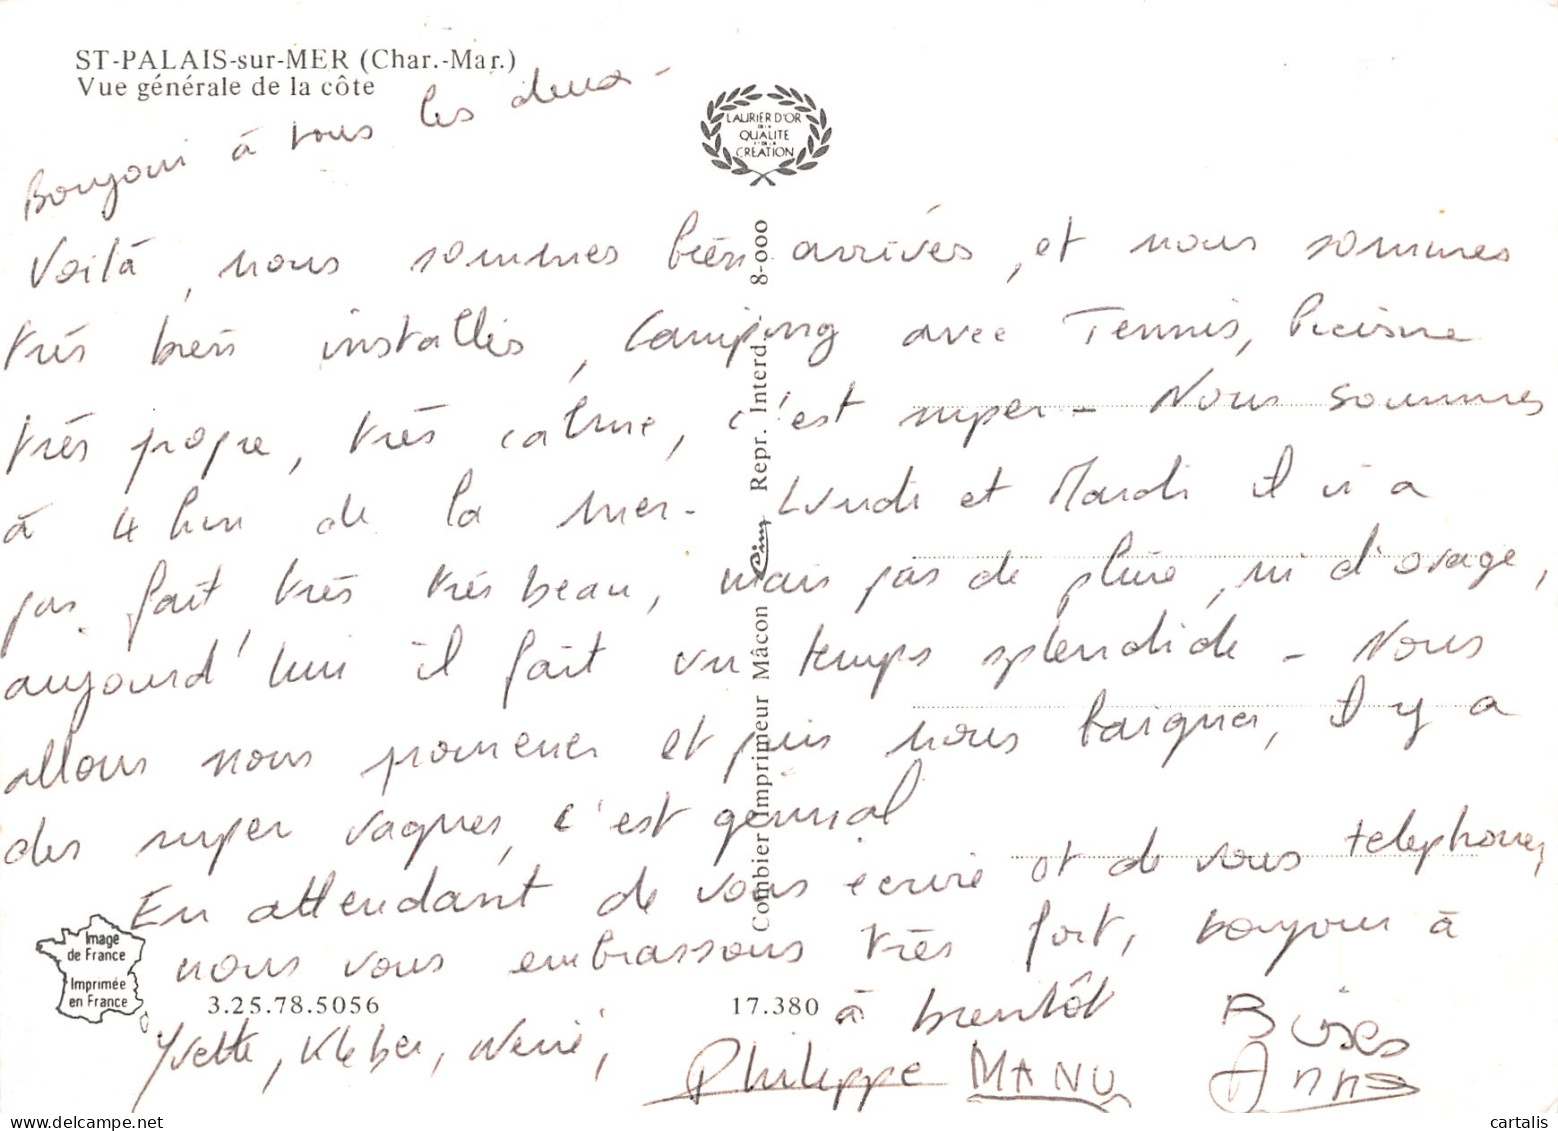 ST-PALAIS-sur-MER (Char.-Mar.)
Vue générale de la côte
Bonjour à vous les deux -
LAURIER D'OR
DE LA
QUALITE
ET DE LA
CREATION
Voilà, nous sommes bien arrivés, et nous sommes
très bien installés, Camping avec Tennis, Piscine
très propre, très calme, c'est super - Nous sommes
à 4 km de la mer - Lundi et Mardi il n'a
pas fait très très beau, mais pas de pluie, ni d'orage,
aujourd'hui il fait un temps splendide - Nous
allons nous promener et puis nous baigner, Il y a
des super vagues, c'est génial
En attendant de vous écrire et de vous telephoner,
nous vous embrassons très fort, bonjour à
Yvette, Kléber,
à bientôt
Bises
Philippe MANU Anna
Image
de France
Imprimée
en France
3.25.78.5056
17.380
Combier Imprimeur Mâcon Cim Repr. Interd. 8-000
cartalis
delcampe.net